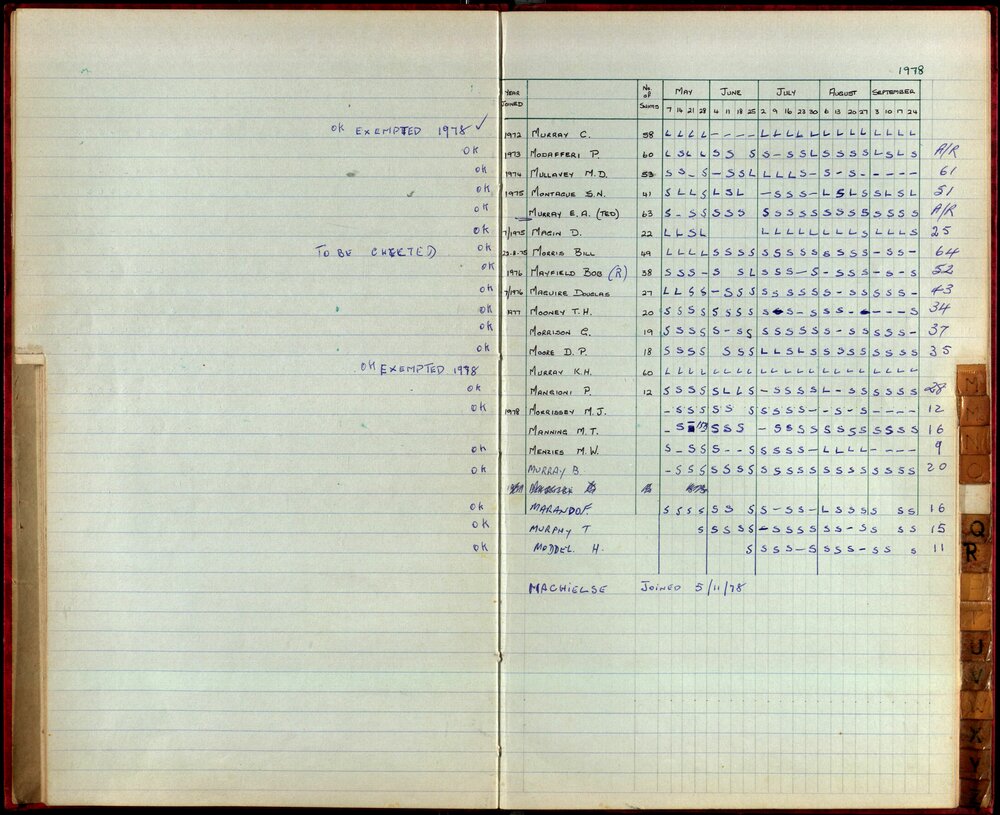 1978
YEAR JOINED No. OF SWIMS MAY JUNE JULY AUGUST SEPTEMBER
7 14 21 28 4 11 18 25 2 9 16 23 30 6 13 20 27 3 10 17 24
OK EXEMPTED 1978 ✓ 1972 MURRAY C. 58 L L L L - - - - L L L L L L L L L L L L L
OK 1973 MODAFFERI P. 60 L S L L S S S S - S S L S S S S L S L S A/R
OK 1974 MULLAVEY M.D. 53 S S - S - S S L L L L S - S - S - - - - - 61
OK 1975 MONTAGUE S.N. 41 S L L S L S L - S S S - L S L S S L S L 51
OK MURRAY E.A. (TED) 63 S - S S S S S S S S S S S S S S S S S S A/R
OK 7/1975 MAGIN D. 22 L L S L L L L L L L L L S L L L S 25
TO BE CHECKED OK 23-8-75 MORRIS BILL 49 L L L L S S S S S S S S S S - S S - S S - 64
OK 1976 MAYFIELD BOB (R) 38 S S S - S S L S S S - S - S S S - S - S 52
OK 7/1976 MAGUIRE DOUGLAS 27 L L S S - S S S S S S S S S - S S S S S - 43
OK 1977 MOONEY T.H. 20 S S S S S S S S S S - S S S - - - - S 34
OK MORRISON G. 19 S S S S S - S S S S S S S S - S S S S S S 37
OK MOORE D.P. 18 S S S S S S S L L S L S S S S S S S S S 35
OK EXEMPTED 1978 MURRAY K.H. 60 L L L L L L L L L L L L L L L L L L L L L
OK MANGIONI P. 12 S S S S S L L S - S S S S L - S S S S S S 28
OK 1978 MORRISSEY M.J. - S S S S S S S S S S - - S - S - - - - 12
OK MANNING M.T. - S S S S - S S S S S S S S S S S S 16
OK MENZIES M.W. S - S S S - - S S S S S - L L L L - - - - 9
OK MURRAY B - S S S S S S S S S S S S S S S S S S S S 20
OK MARANDOF S S S S S S S S - S S - L S S S S S S 16
OK MURPHY T S S S S S - S S S S S S - S S S S 15
OK MODDEL H. S S S S - S S S S - S S S 11
MACHIELSE JOINED 5/11/78
M
M
N
O
Q
R
T
U
V
W
X
Y